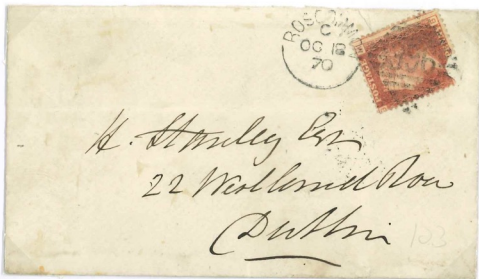 ROSCOMMON
C
OC 18
70
H. Stanley Esqr
22 Westland Row
Dublin
123